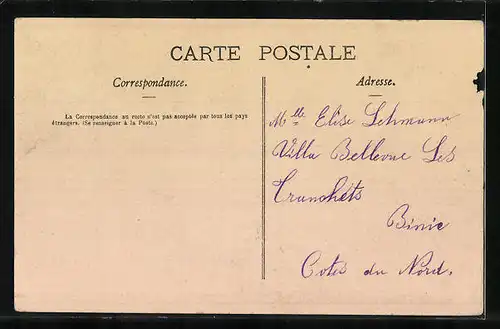 CARTE POSTALE
Correspondance.
La Correspondance au recto n'est pas acceptée par tous les pays
étrangers. (Se renseigner à la Poste.)
Adresse.
Mlle Elise Lehmann
Villa Bellevue Les
Binic
Cotes du Nord.